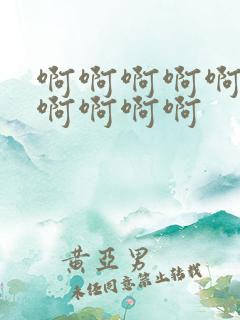 啊啊啊啊啊
啊啊啊啊
黄亞男
未经同意禁止转载